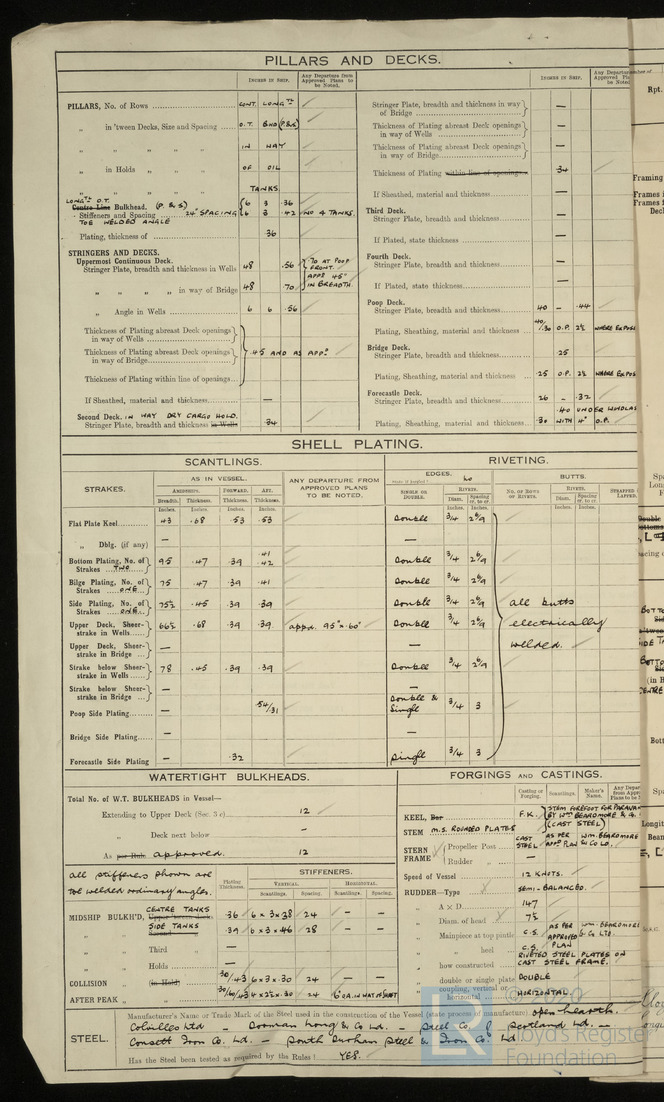 PILLARS AND DECKS.
INCHES IN SHIP.
Any Departure from Approved Plans to be Noted.
PILLARS, No. of Rows
CONT. LONGTL
„ in 'tween Decks, Size and Spacing
O.T. BHD (P.&S)
IN WAY
„ in Holds „ „
OF OIL
TANKS
LONGTL O.T.
Centre Line Bulkhead. (P. & S)
Stiffeners and Spacing 24" SPACING
6 3 .36
6 3 .42 NO 4 TANKS.
TOE WELDED ANGLE
Plating, thickness of
.36
STRINGERS AND DECKS.
Uppermost Continuous Deck.
Stringer Plate, breadth and thickness in Wells
48 .56
.70 AT POOP FRONT.
APPD 45" IN BREADTH.
„ „ „ „ in way of Bridge
48 .70
„ Angle in Wells
6 6 .56
Thickness of Plating abreast Deck openings in way of Wells
Thickness of Plating abreast Deck openings in way of Bridge
.45 AND AS APPD
Thickness of Plating within line of openings
If Sheathed, material and thickness
—
Second Deck. IN WAY DRY CARGO HOLD.
Stringer Plate, breadth and thickness in Wells
.34
INCHES IN SHIP.
Stringer Plate, breadth and thickness in way of Bridge
—
Thickness of Plating abreast Deck openings in way of Wells
—
Thickness of Plating abreast Deck openings in way of Bridge
—
Thickness of Plating within line of openings
.34
If Sheathed, material and thickness
—
Third Deck.
Stringer Plate, breadth and thickness
—
If Plated, state thickness
—
Fourth Deck.
Stringer Plate, breadth and thickness
—
If Plated, state thickness
—
Poop Deck.
Stringer Plate, breadth and thickness
40 – .44
Plating, Sheathing, material and thickness
.40/.30 O.P. 2½ WHERE EXPOS
Bridge Deck.
Stringer Plate, breadth and thickness
.25
Plating, Sheathing, material and thickness
.25 O.P. 2½ WHERE EXPOS
Forecastle Deck.
Stringer Plate, breadth and thickness
26 – .32
.40 UNDER WINDLAS
Plating, Sheathing, material and thickness
.30 WITH 4" O.P.
SHELL PLATING.
SCANTLINGS.
RIVETING.
STRAKES.
AS IN VESSEL.
ANY DEPARTURE FROM APPROVED PLANS TO BE NOTED.
EDGES.
BUTTS.
AMIDSHIPS.
FORWARD.
AFT.
SINGLE OR DOUBLE.
RIVETS.
NO. OF ROWS OF RIVETS.
RIVETS.
STRAPPED
LAPPED.
Breadth. Thickness. Thickness. Thickness.
Diam. Spacing cr. to cr.
Diam. Spacing cr. to cr.
Inches. Inches. Inches. Inches.
Flat Plate Keel
43 .68 .53 .53 Double ¾ 2 6/9
„ Dblg. (if any)
— —
Bottom Plating, No. of Strakes TWO
95 .47 .39 .41 .42 Double ¾ 2 6/9
Bilge Plating, No. of Strakes ONE
75 .47 .39 .41 Double ¾ 2 6/9
Side Plating, No. of Strakes ONE
75½ .45 .39 .39 Double ¾ 2 6/9
all butts electrically welded.
Upper Deck, Sheerstrake in Wells
66½ .68 .39 .39 appd. 95" x .60" Double ¾ 2 6/9
Upper Deck, Sheerstrake in Bridge
— —
Strake below Sheerstrake in Wells
78 .45 .39 .39 Double ¾ 2 6/9
Strake below Sheerstrake in Bridge
— —
Poop Side Plating
— .54/31 Double & Single ¾ 3
Bridge Side Plating
— —
Forecastle Side Plating
— .32 Single ¾ 3
WATERTIGHT BULKHEADS.
Total No. of W.T. BULKHEADS in Vessel—
Extending to Upper Deck (Sec. 3 c)
12
„ Deck next below
–
As per Rule approved
12
all stiffeners shown are toe welded ordinary angles.
Plating Thickness.
STIFFENERS.
VERTICAL.
HORIZONTAL.
Scantlings. Spacing. Scantlings. Spacing.
MIDSHIP BULKH'D,
CENTRE TANKS
.36 6 x 3 x 38 24 – –
SIDE TANKS
.39 6 x 3 x 46 28 – –
„ Third „
„ Holds
COLLISION „ (in Hold)
.30/.43 6 x 3 x .30 24 –
AFTER PEAK „ „
.30/60/43 4 x 2½ x .30 24
FORGINGS AND CASTINGS.
Casting or Forging.
Scantlings.
Maker's Name.
KEEL, Bar
F.K.
STEM FOREFOOT FOR PARAVA
BY WM BEARDMORE & Co.
(CAST STEEL)
STEM M.S. ROUNDED PLATES
STERN FRAME
Propeller Post
CAST STEEL AS PER APPD PLAN WM. BEARDMORE & CO LD.
Rudder „
—
Speed of Vessel
12 KNOTS.
RUDDER—Type
SEMI-BALANCED.
„ A × D
147
„ Diam. of head
7½
„ Mainpiece at top pintle
C.S. AS PER APPROVED PLAN WM. BEARDMORE & CO LTD.
„ „ heel
C.S.
„ how constructed
RIVETED STEEL PLATES ON CAST STEEL FRAME.
„ double or single plate
DOUBLE
„ coupling, vertical or horizontal
HORIZONTAL
STEEL.
Manufacturer's Name or Trade Mark of the Steel used in the construction of the Vessel (state process of manufacture) open hearth.
Colvilles Ltd – Dorman Long & Co Ld. – Steel Co. of Scotland Ld. –
Consett Iron Co. Ld. – South Durham Steel & Iron Co. Ld
Has the Steel been tested as required by the Rules?
YES.
Rpt.
Framing
Lloyd's Register
Foundation